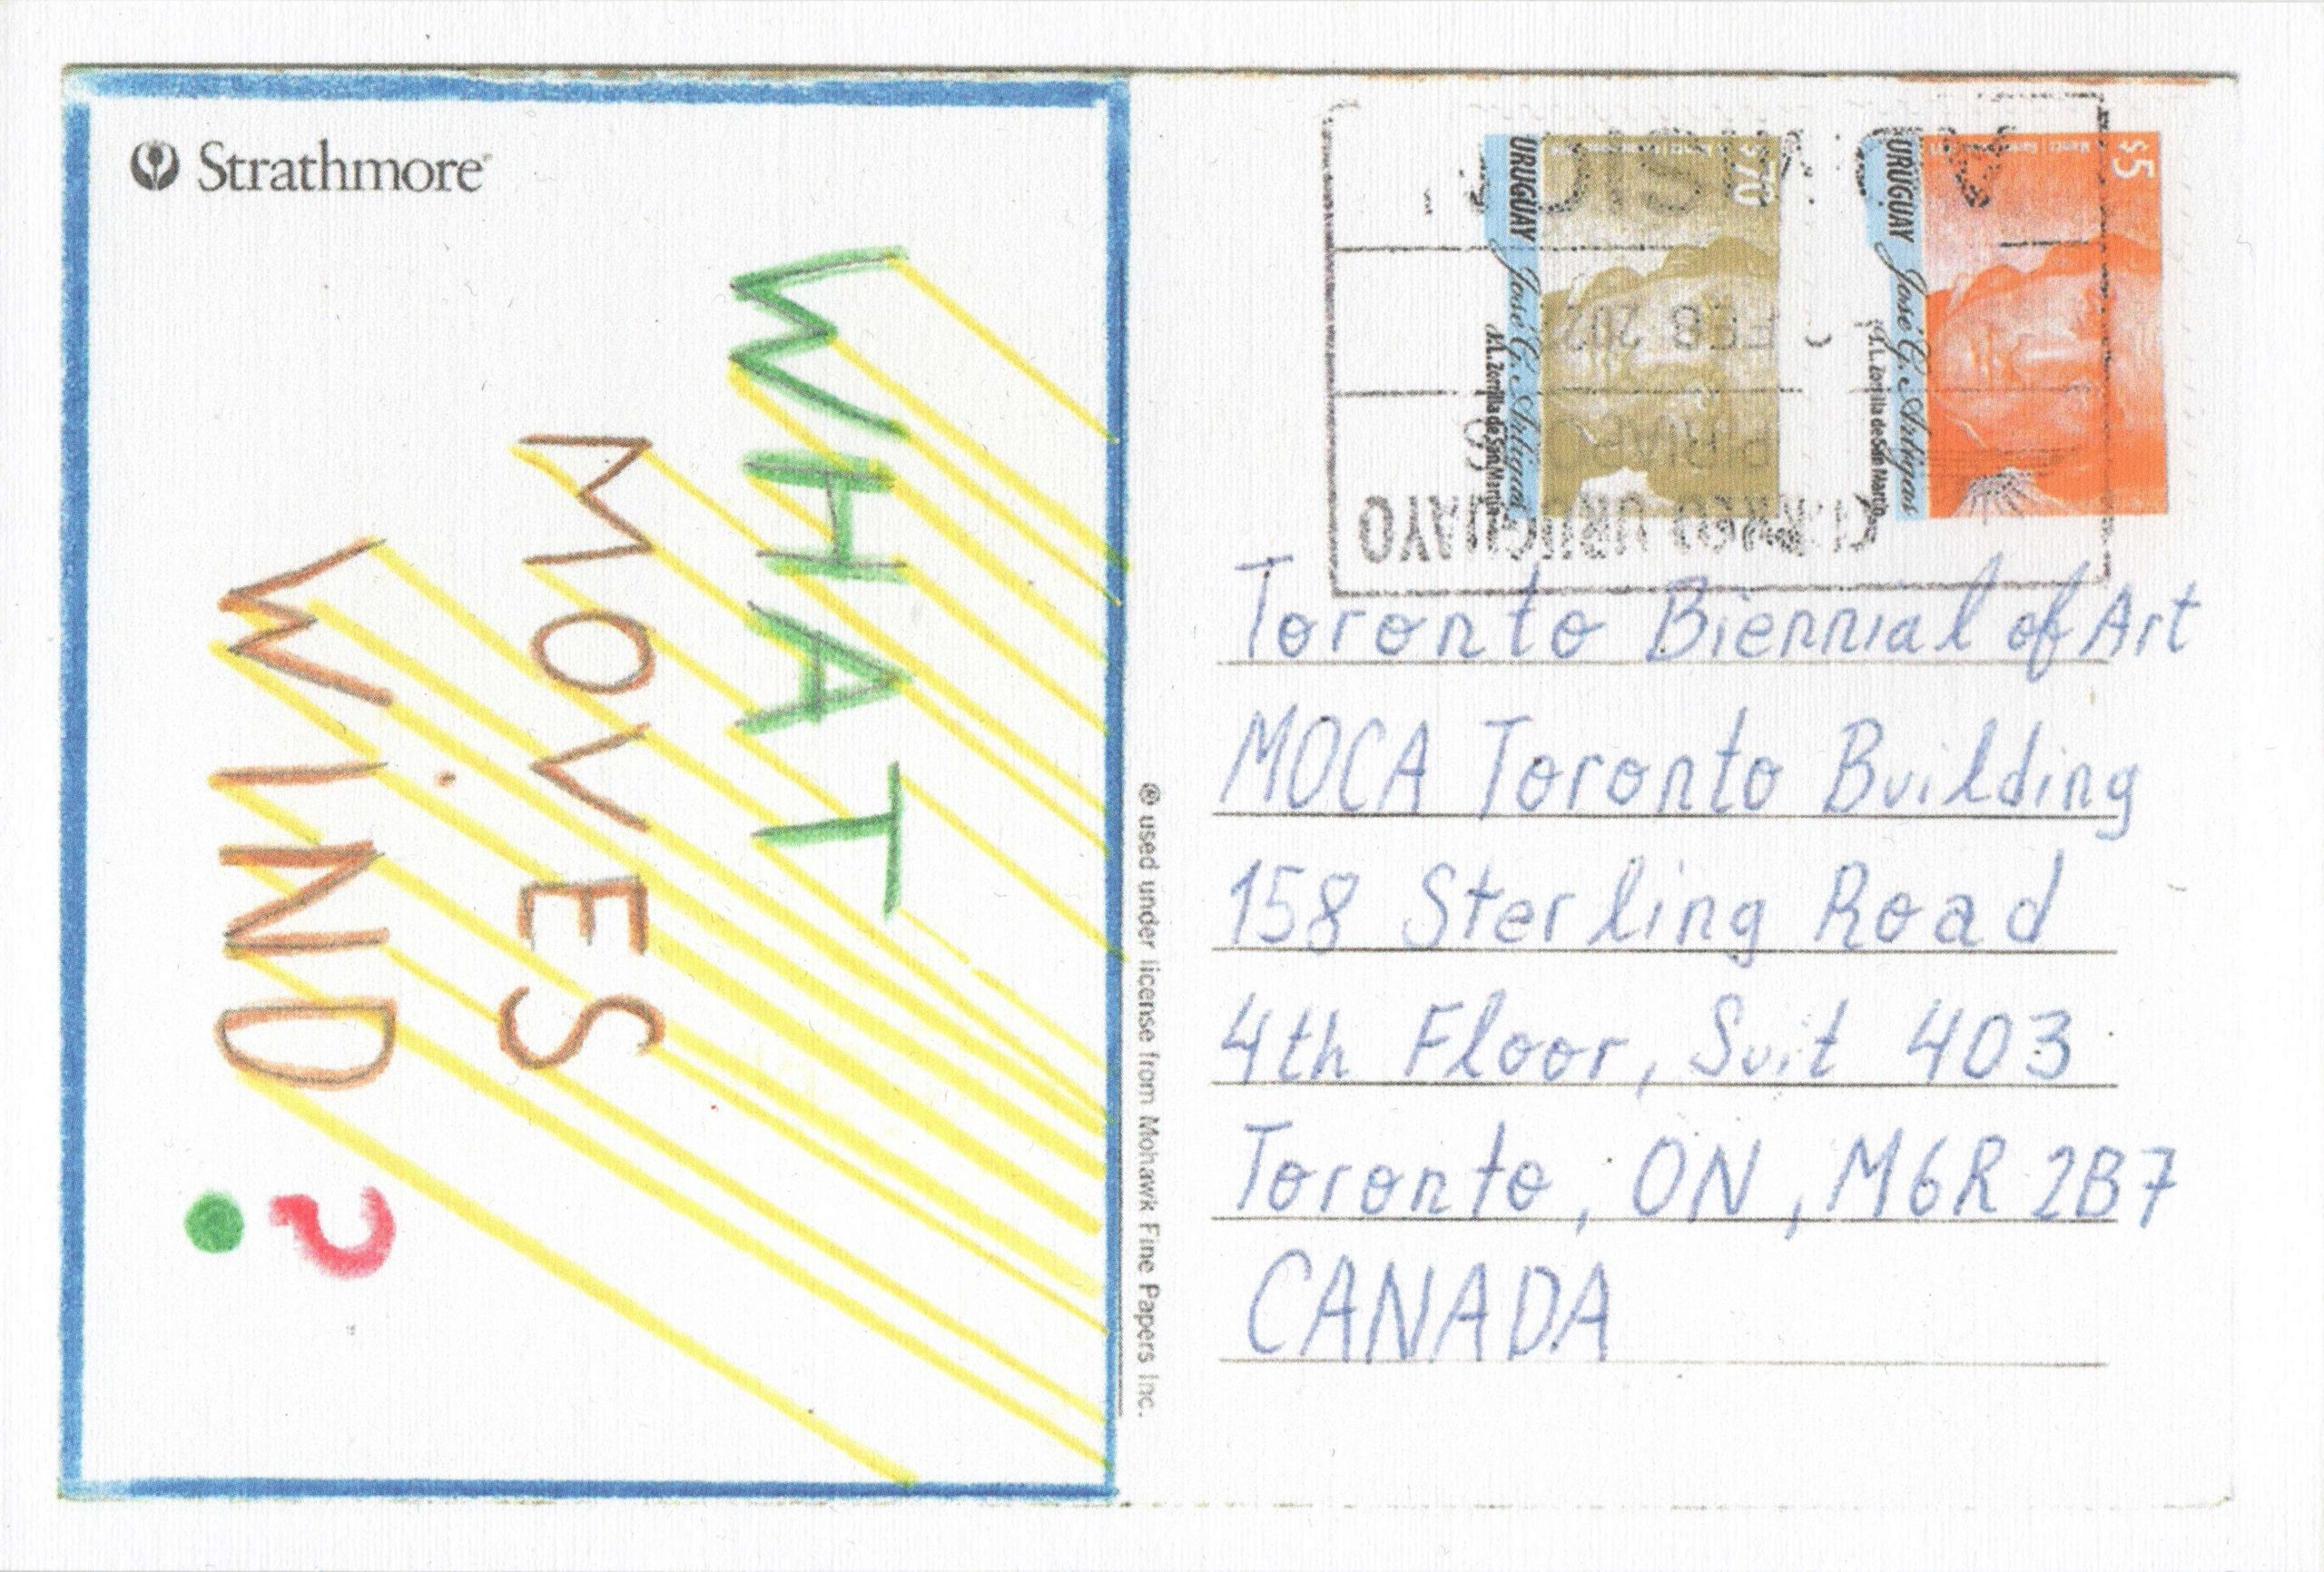 Strathmore
WHAT
MOVES
WIND
?
® used under license from Mohawk Fine Papers Inc.
$70
URUGUAY
José G. Artigas
J.L. Zorrilla de San Martín
$5
URUGUAY
José G. Artigas
J.L. Zorrilla de San Martín
FEB 202
CORREO URUGUAYO
Toronto Biennial of Art
MOCA Toronto Building
158 Sterling Road
4th Floor, Suit 403
Toronto, ON, M6R 2B7
CANADA